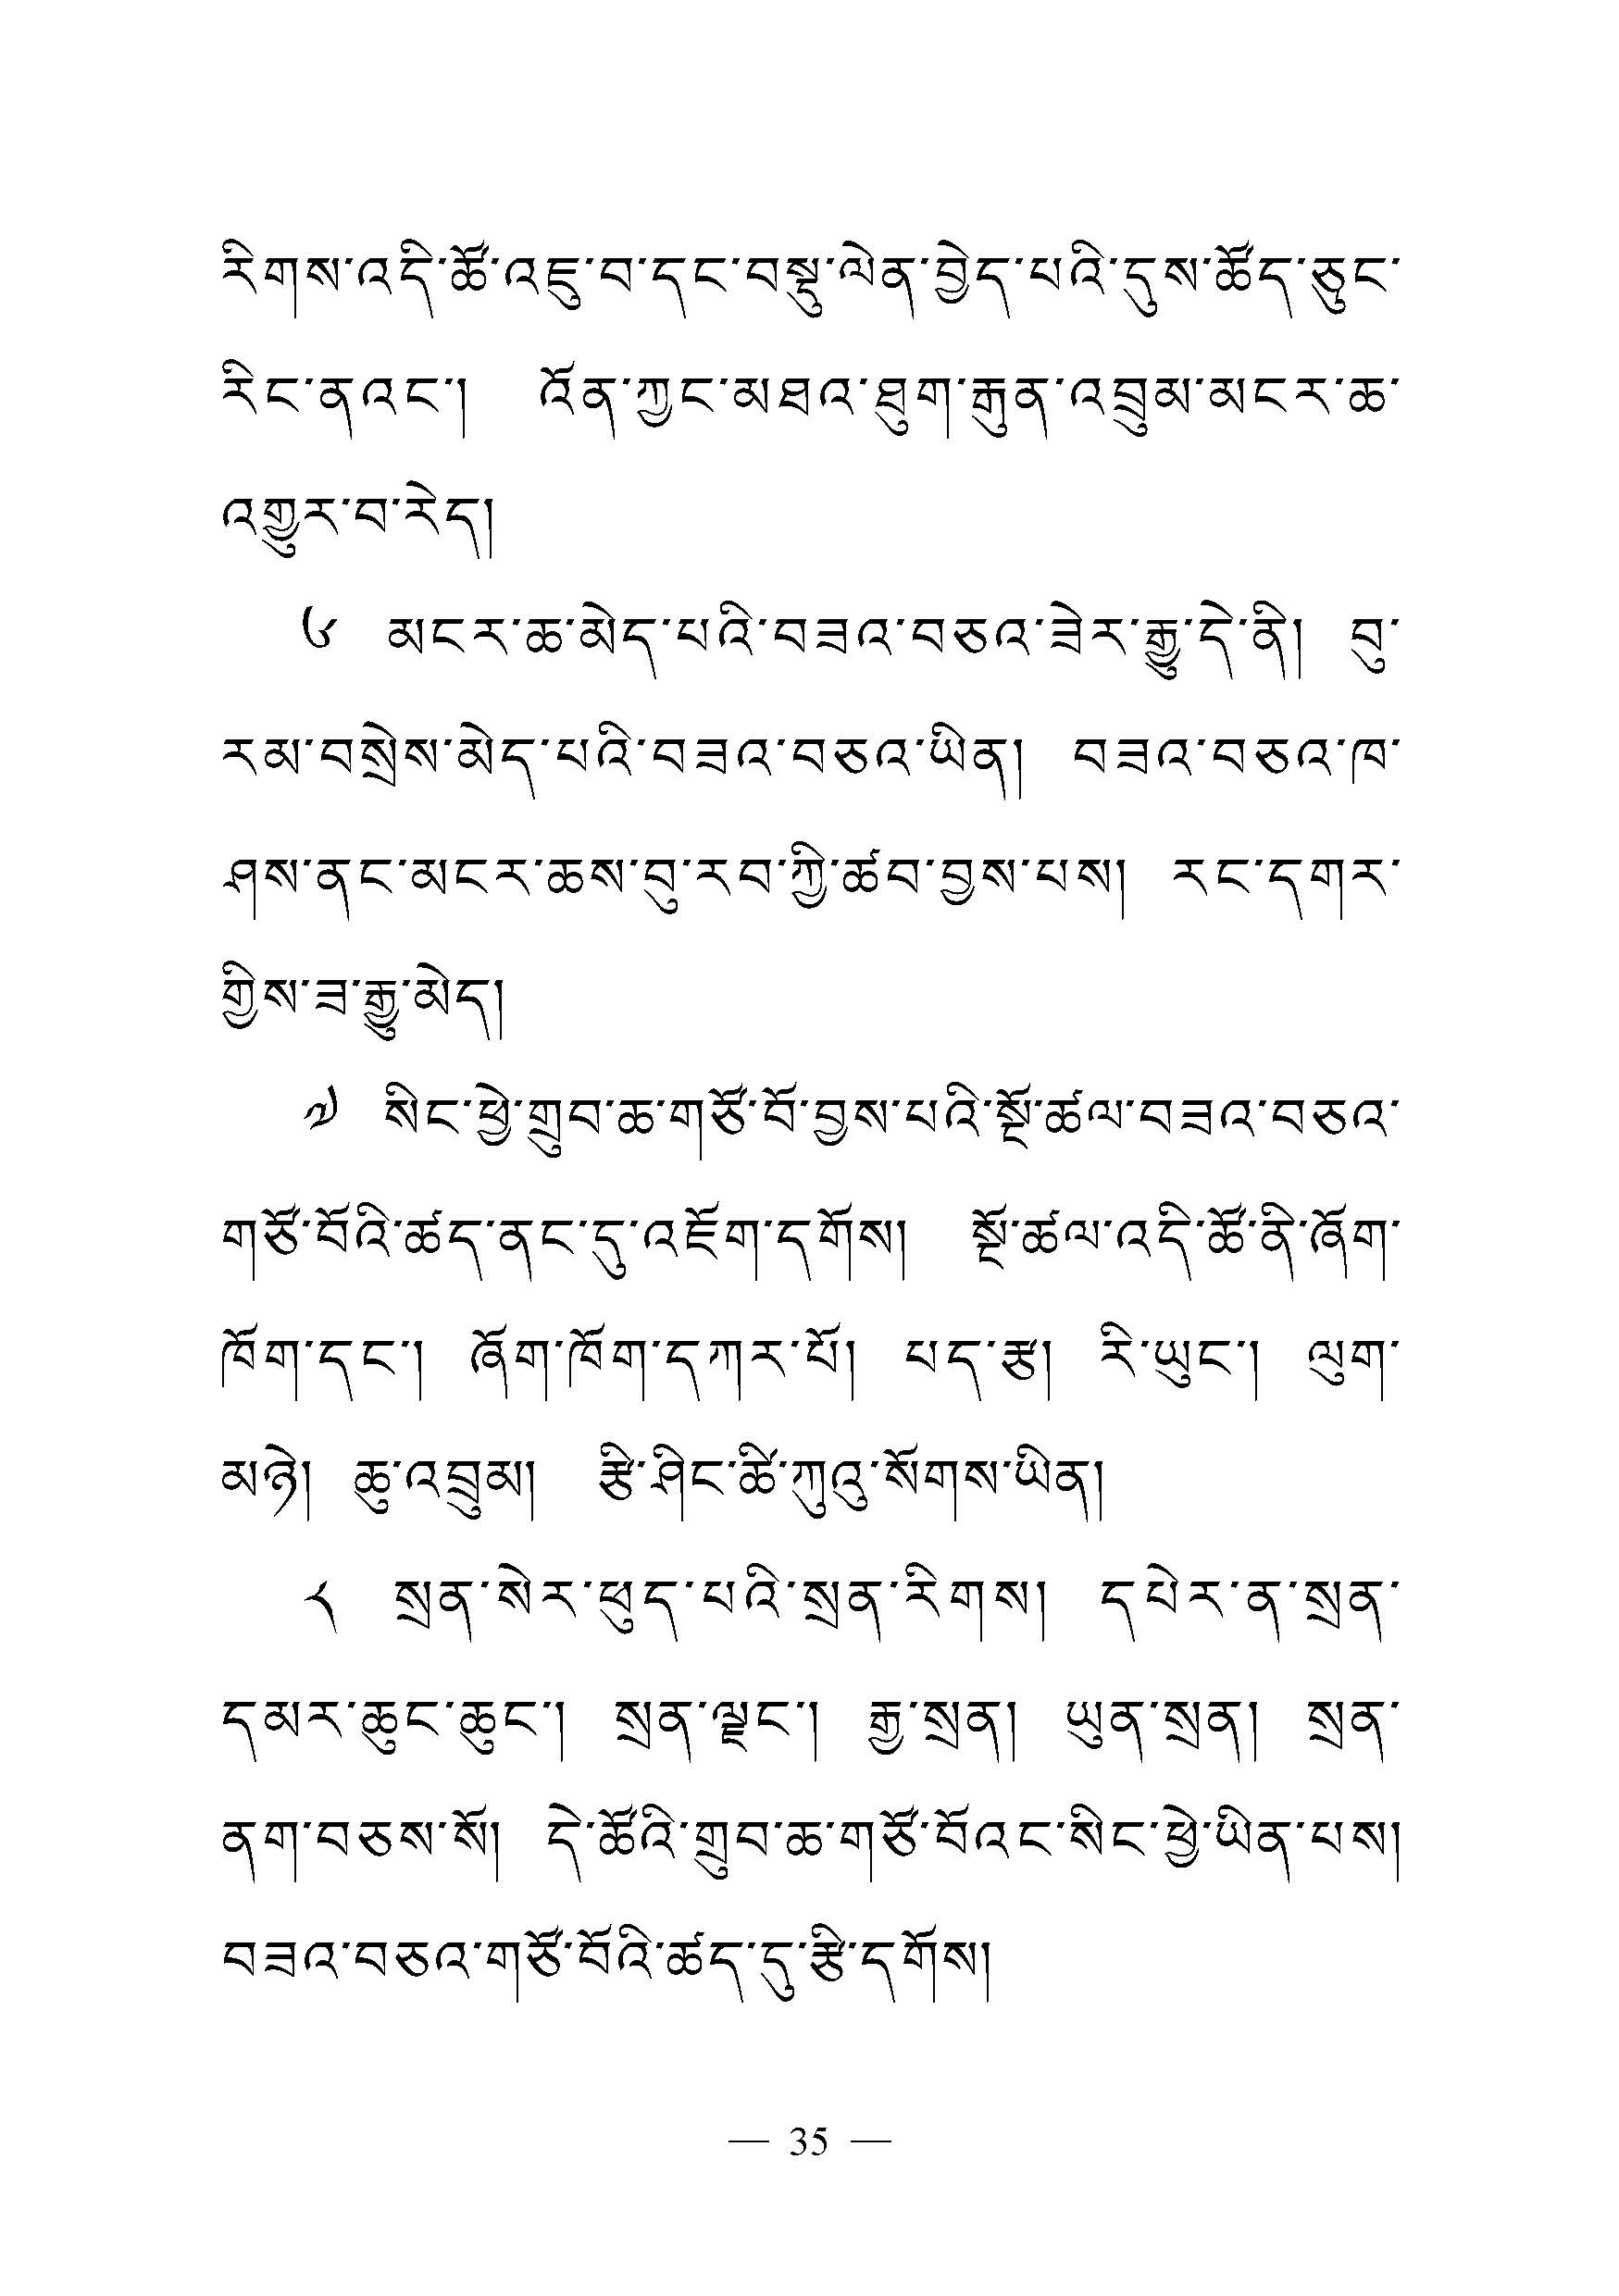 རིགས་འདི་ཚོ་འཇུ་བ་དང་བསྡུ་ལེན་བྱེད་པའི་དུས་ཚོད་ཅུང་
རིང་ནའང་། འོན་ཀྱང་མཐའ་ཐུག་རྒུན་འབྲུམ་མངར་ཆ་
འགྱུར་བ་རེད།
༦ མངར་ཆ་མེད་པའི་བཟའ་བཅའ་ཟེར་རྒྱུ་དེ་ནི། བུ་
རམ་བསྲེས་མེད་པའི་བཟའ་བཅའ་ཡིན། བཟའ་བཅའ་ཁ་
ཤས་ནང་མངར་ཆས་བུ་རབ་ཀྱི་ཚབ་བྱས་པས། རང་དགར་
གྱིས་ཟ་རྒྱུ་མེད།
༧ སིང་ཕྱེ་གྲུབ་ཆ་གཙོ་བོ་བྱས་པའི་སྔོ་ཚལ་བཟའ་བཅའ་
གཙོ་བོའི་ཚད་ནང་དུ་འཇོག་དགོས། སྔོ་ཚལ་འདི་ཚོ་ནི་ཞོག་
ཁོག་དང་། ཞོག་ཁོག་དཀར་པོ། པད་རྩ། རི་ཡུང་། ལུག་
མཉེ། ཆུ་འབྲུམ། རྩི་ཤིང་ཚི་ཀུའུ་སོགས་ཡིན།
༨ སྲན་སེར་ཕུད་པའི་སྲན་རིགས། དཔེར་ན་སྲན་
དམར་ཆུང་ཆུང་། སྲན་ལྗང་། རྒྱ་སྲན། ཡུན་སྲན། སྲན་
ནག་བཅས་སོ། དེ་ཚོའི་གྲུབ་ཆ་གཙོ་བོའང་སིང་ཕྱེ་ཡིན་པས།
བཟའ་བཅའ་གཙོ་བོའི་ཚད་དུ་རྩི་དགོས།
— 35 —